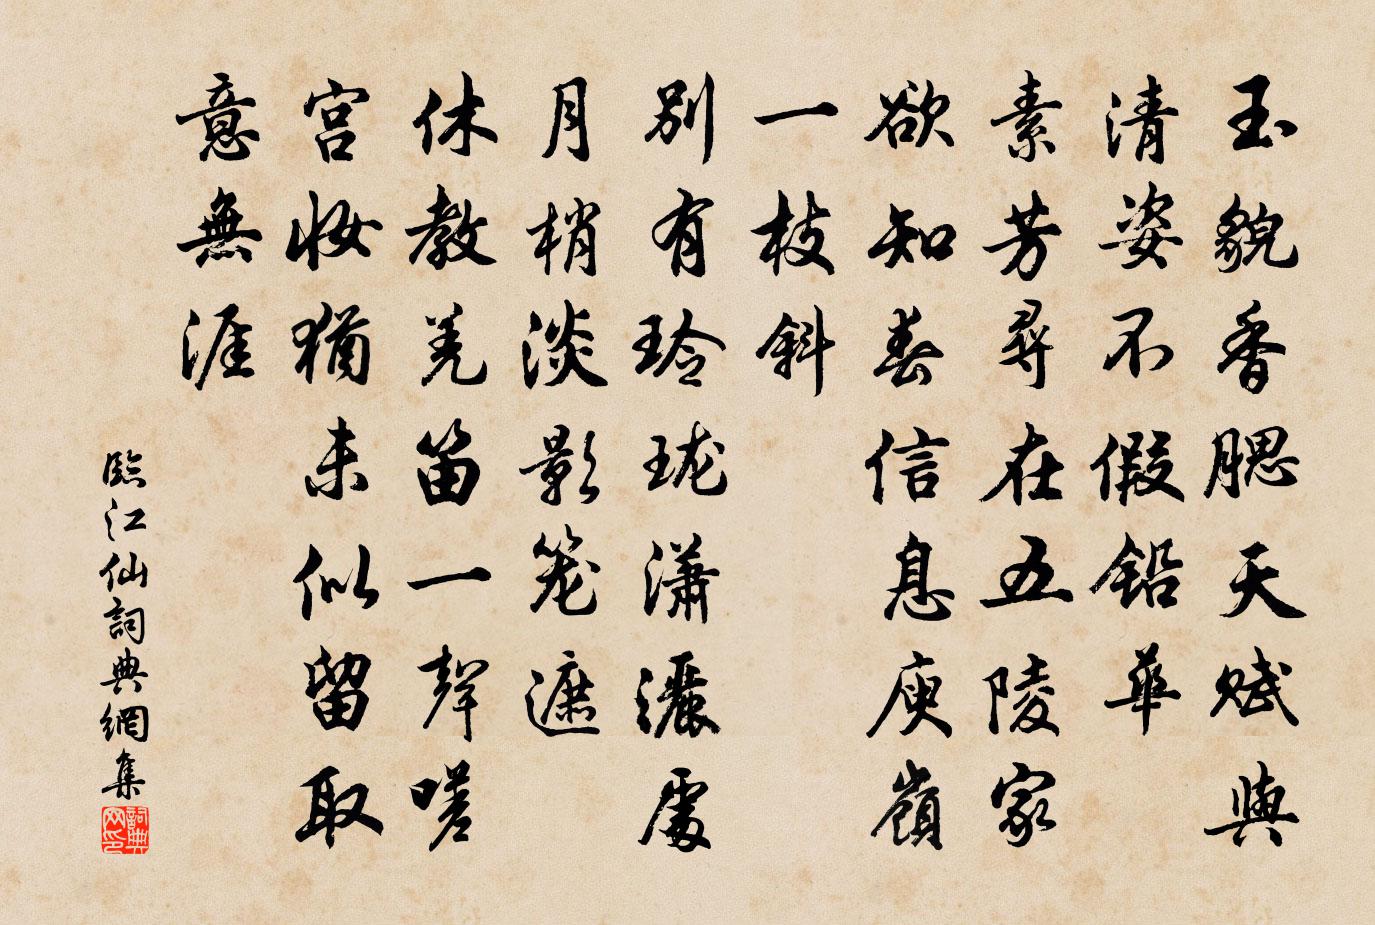 玉貌香腮天賦與
清姿不假鉛華
素芳尋在五陵家
欲知春信息庾嶺
一枝斜
別有玲珑瀟灑處
月梢淡影笼遮
休教羌笛一聲嗟
宫妝猶未似留取
意無涯
臨江仙詞典網集
詞典网印